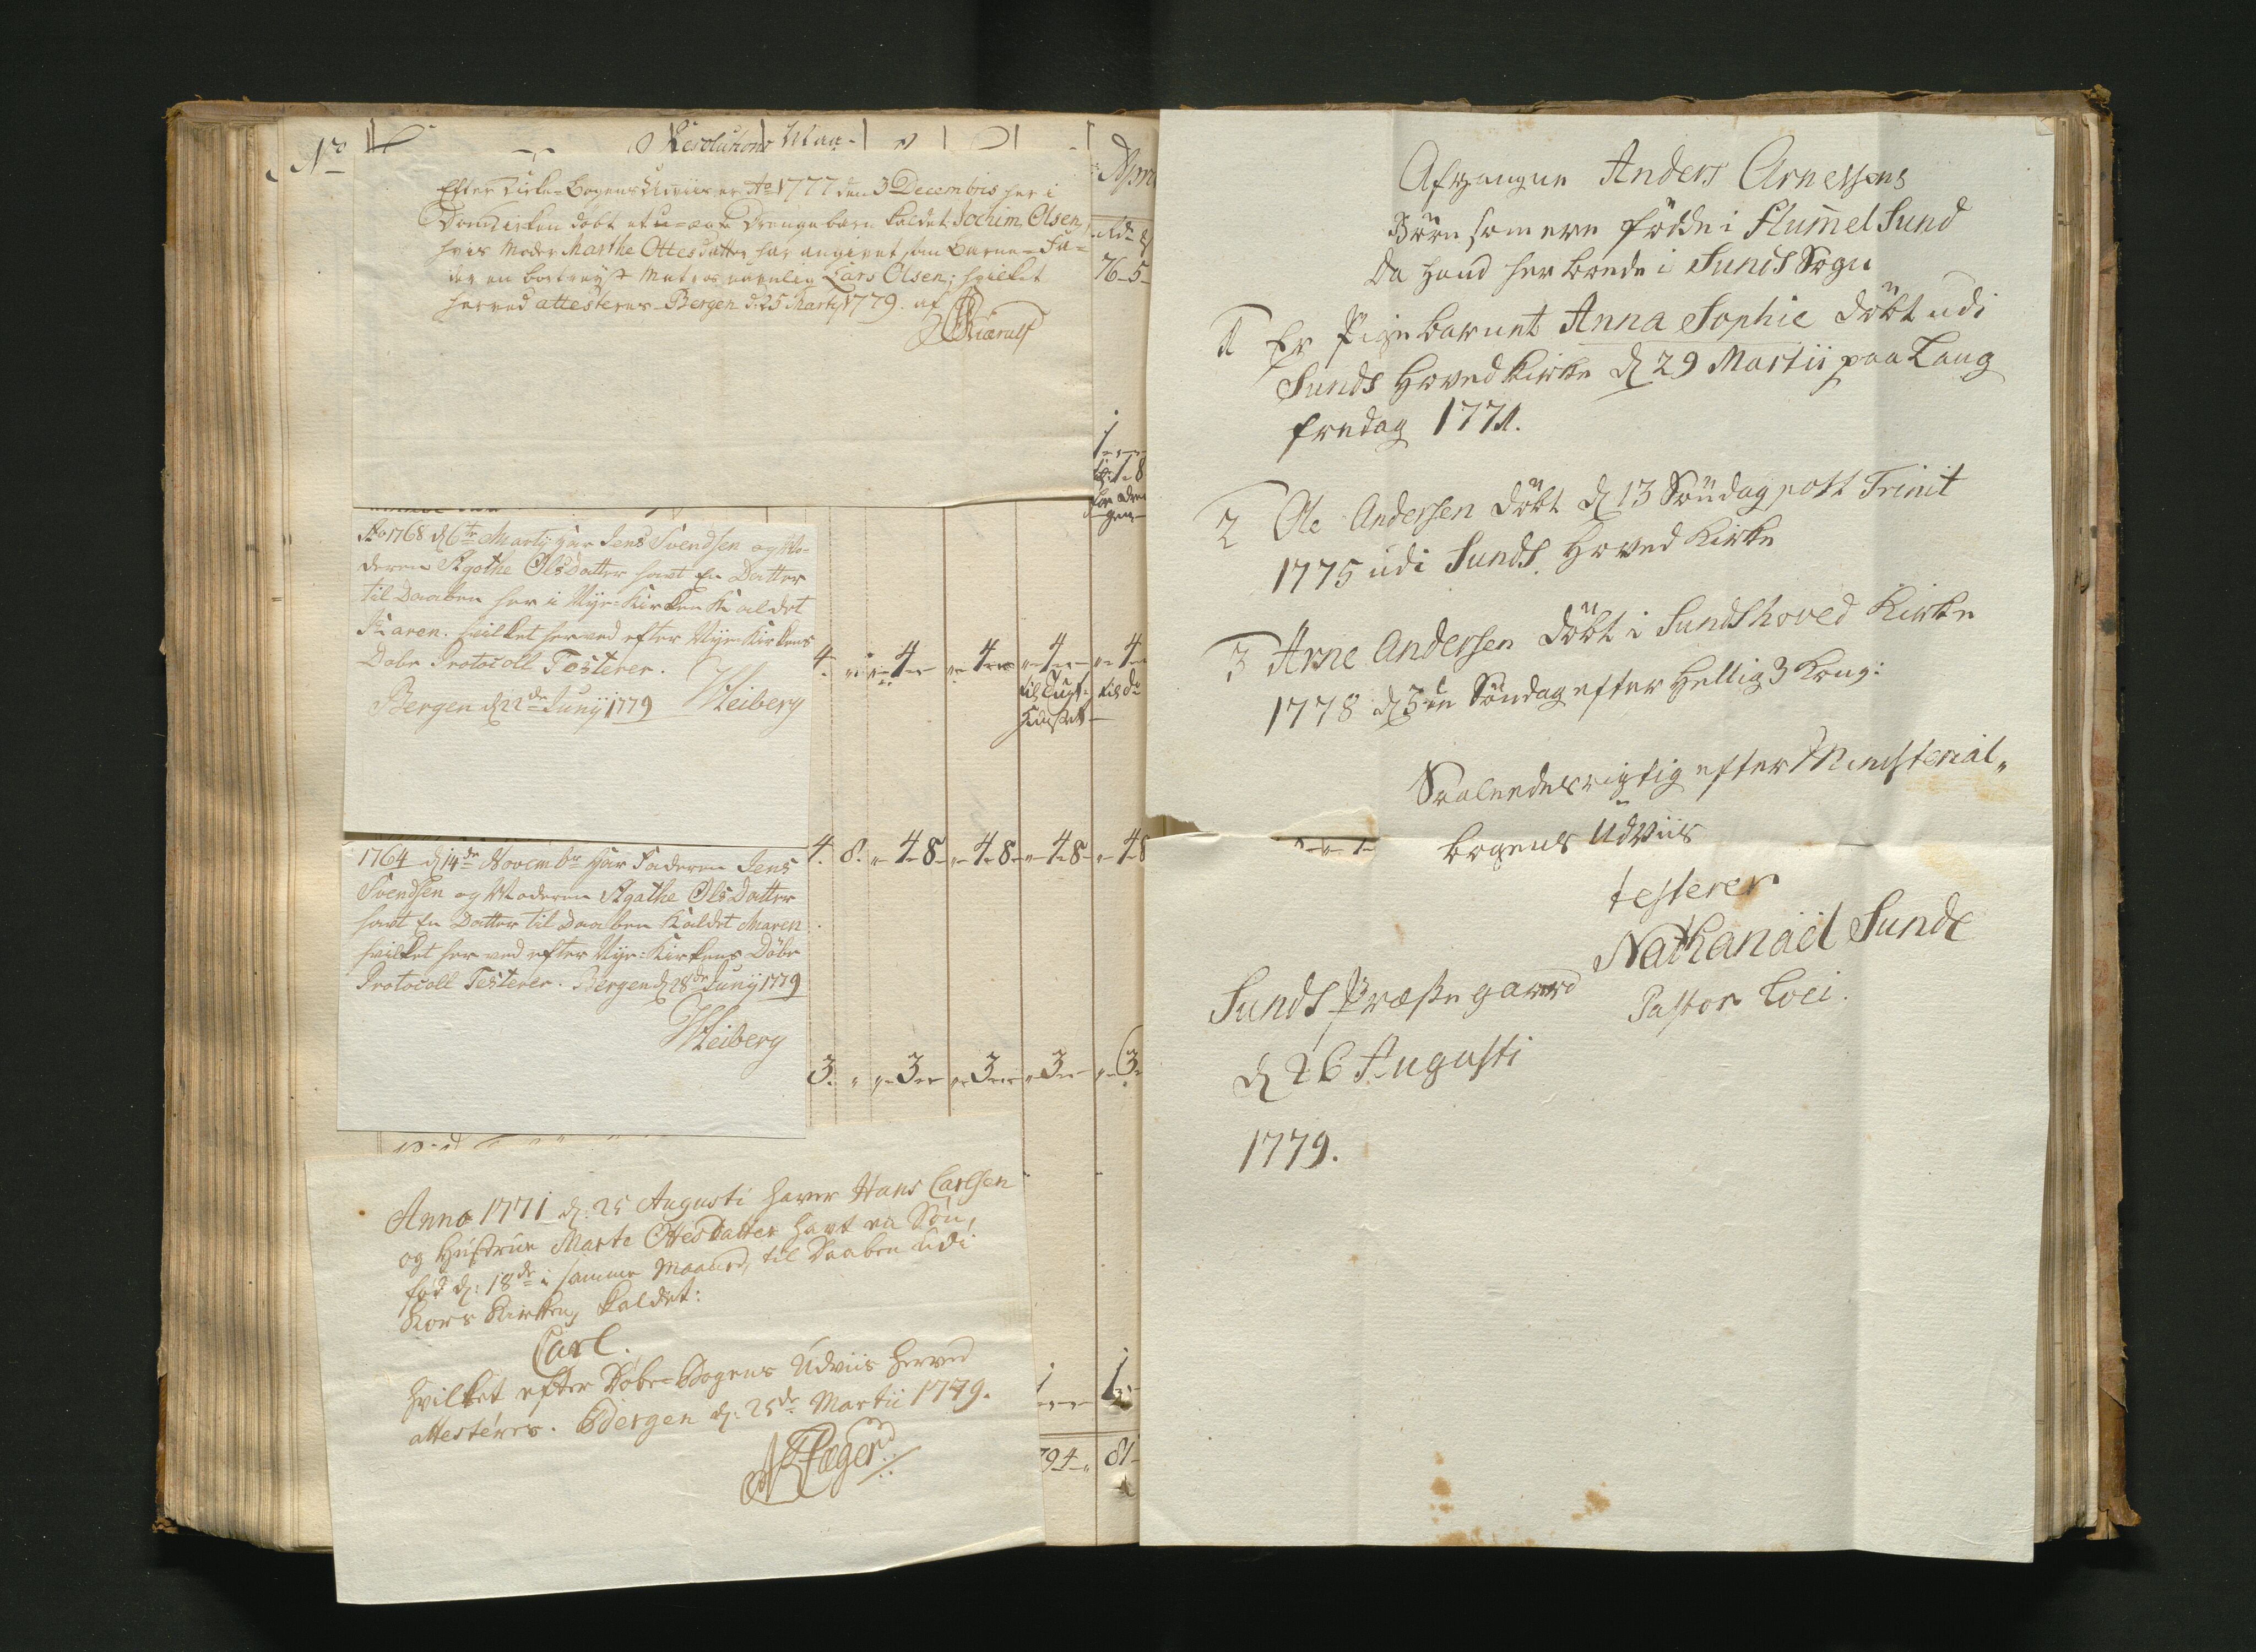 No
Resolutions Maa-
Efter Kirke-Bogens Udviis er Ao 1777 den 3 Decembris her i
Domkirken døbt et u-ægte Drengebarn kaldet Jochim Olsen,
hvis Moder Marthe Ottesdatter har angivet som Barne-Fa-
der en bortreyst Matros navnlig Lars Olsen; hvilket
herved attesteres. Bergen d: 25 Martij 1779. af
76-5-
Ao 1768 d 6te Martij har Jens Svendsen og Mo-
deren Agathe Olsdatter havt En Datter
til Daaben her i Nye-Kirken Kaldet
Karen. hvilket herved efter Nye-Kirkens
Døbe Protocoll Testerer.
Bergen d 22de Junij 1779 Heiberg
4. 4 4 4 4
til Tugt-
Huuset
4. 8. 48 48 48 48
1764 d 14de Novembr har Faderen Jens
Svendsen og Moderen Agathe OlsDatter
havt En Datter til Daaben Kaldet Maren
hvilket her ved efter Nye-Kirkens Døbe
Protocoll Testerer. Bergen d 28de Junij 1779
Heiberg
3. 3 3 3 3
Anno 1771 d: 25 Augusti haver Hans Carlsen
og Hustrue Marte OttesDatter havt en Søn,
fød d: 18de i samme Maaned, til Daaben udi
Kors Kirken, kaldet:
Carl.
hvilket efter Døbe-Bogens Udviis herved
attesteres. Bergen d: 25de Martii 1779.
794 81
Afgangne Anders Arnessens
Børn som ere fødde i Flummel Sund
Da hand her boede i Sunds Sogn
1 Er Pige barnet Anna Sophie døbt udi
Sunds Hoved Kirke d 29 Martii paa Lang
fredag 1771.
2 Ole Andersen døbt d 13 Søndag post Trinit
1775 udi Sunds Hoved Kirke
3 Arne Andersen døbt i Sunds hoved Kirke
1778 d 3de Søndag efter Hellig 3 Kong:
Saaledes rigtig efter Ministerial„
bogens Udviis
testerer
Nathanaël Sunde
Sunds Præste gaard Pastor Loci.
d 26 Augusti
1779.